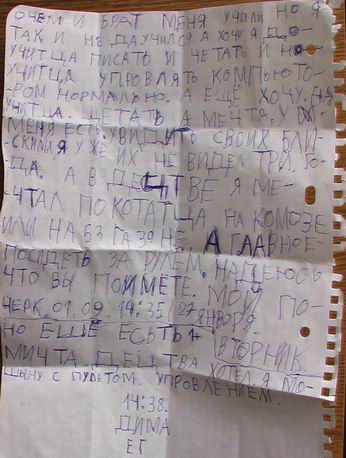 ОЧЕМ И БРАТ МЕНЯ УЧИЛИ НО Я
ТАК И НЕ ДАУЧИЛСЯ. А ХОЧУ Я ДО-
УЧИТЦА ПИСАТО И ЧЕТАТО И НА
УЧИТЦА УПРОВЛЯТЬ КОМПЬЮТО-
РОМ НОРМАЛЬНО. А ЕЩЕ ХОЧУ
УЧИТЦА ЧЕТАТЬ А МЕЧТА У
МЕНЯ ЕСТЬ. УВИДИТЬ СВОИХ БЛИ-
СКИМИ Я УЖЕ ИХ НЕ ВИДЕЛ ТРИ ГО-
ДА. А В ДЕЦТВЕ Я МЕ-
ЧТАЛ ПОКОТАТЦА НА КОМОЗЕ
ИЛИ НА БЗ ГАЗ А ГЛАВНОЕ-
ПОСИДЕТЬ ЗА РУЛЕМ. НАДЕЮСЬ
ЧТО ВЫ ПОЙМЁТЕ. МОЙ ПО-
ЧЕРК. 01.09. 14:35 27 ЯНВАРЯ.
НО ЕЩЕ ЕСТЬ ВТОРНИК
МИЧТА ДЕЦТВА ХОТЕЛ Я МО-
ШЫНУ С ПУЛЬТОМ. УПРОВЛЕНИЕМ.
14:38.
ДИМА
ЕГ